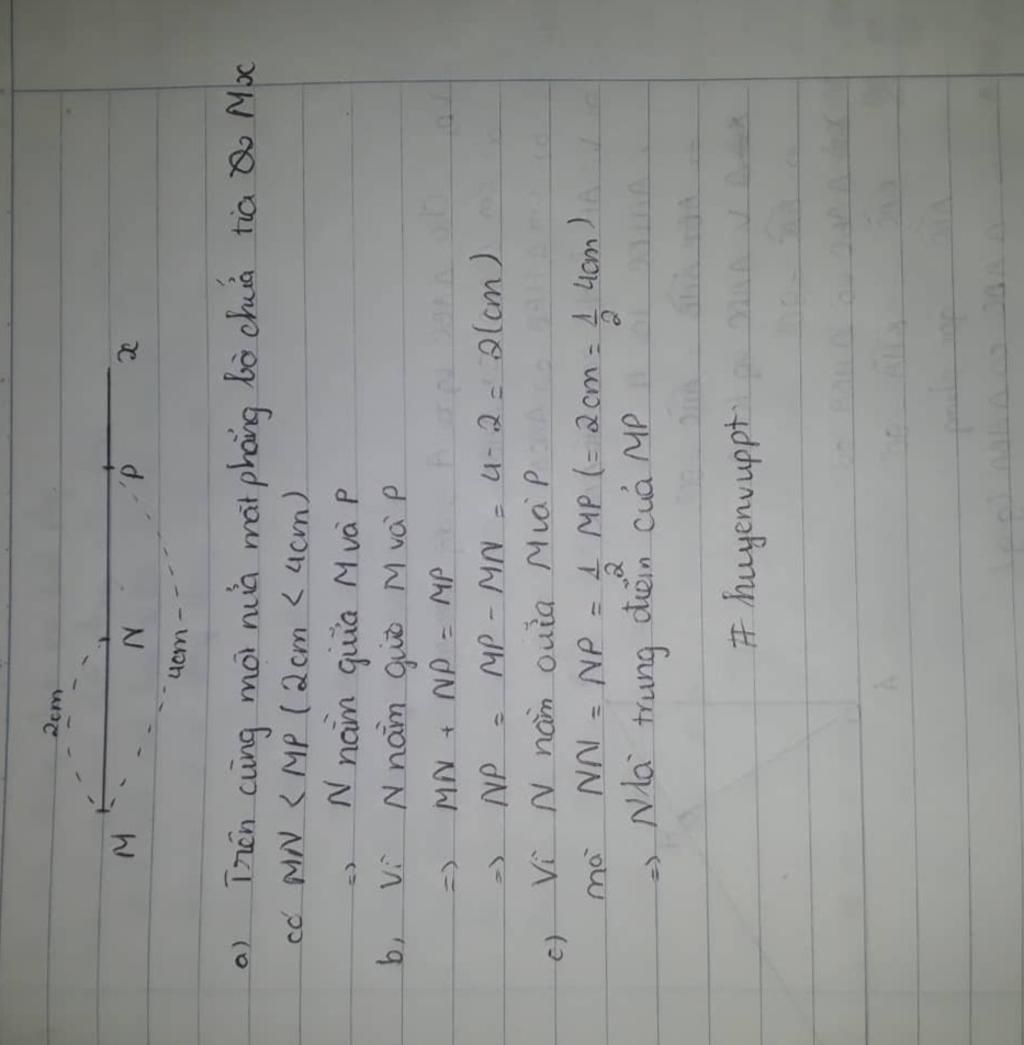 2cm
M N P x
4cm
a) Trên cùng một nửa mặt phẳng bờ chứa tia Mx
có MN < MP (2cm < 4cm)
=> N nằm giữa M và P
b, Vì N nằm giữa M và P
=> MN + NP = MP
=> NP = MP - MN = 4 - 2 = 2(cm)
c) Vì N nằm giữa M và P
mà NN = NP = 1/2 MP (= 2cm = 1/2 4cm)
=> N là trung điểm của MP
# huyenvuppt